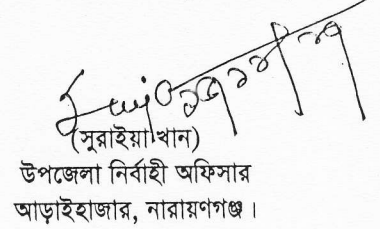 (সুরাইয়া খান)
উপজেলা নির্বাহী অফিসার
আড়াইহাজার, নারায়ণগঞ্জ।